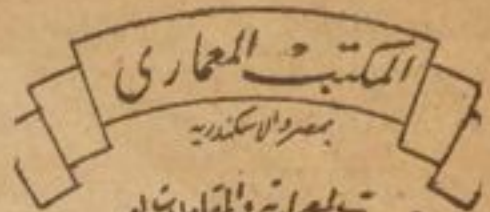 المكتب المعمارى
بمصر والاسكندريه